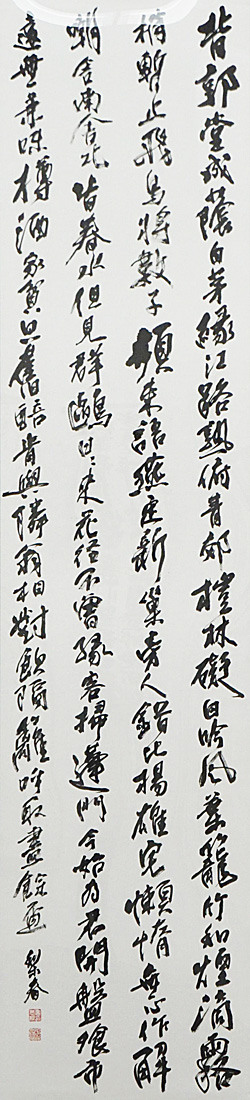 背郭堂成蔭白茅緣江路熟俯青郊榿林礙日吟風葉籠竹和煙滴露
梢暫止飛烏將數子頻來語燕定新巢旁人錯比楊雄宅懶惰無心作解
嘲舍南舍北皆春水但見群鷗日々來花径不曾緣客掃蓬門今始為君開盤飧市
遠無兼味樽酒家貧只舊醅肯與隣翁相對飲隔籬呼取盡餘盃 梨春